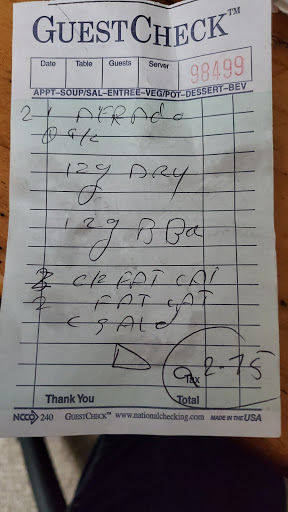 GUESTCHECK™
Date Table Guests Server
98499
APPT-SOUP/SAL-ENTREE-VEG/POT-DESSERT-BEV
2 1
12g DRY
12g BBQ
2 FAT CAT
2 FAT CAT
2.75
Tax
Thank You Total
NCCO 240 GUESTCHECK™ www.nationalchecking.com MADE IN THE USA